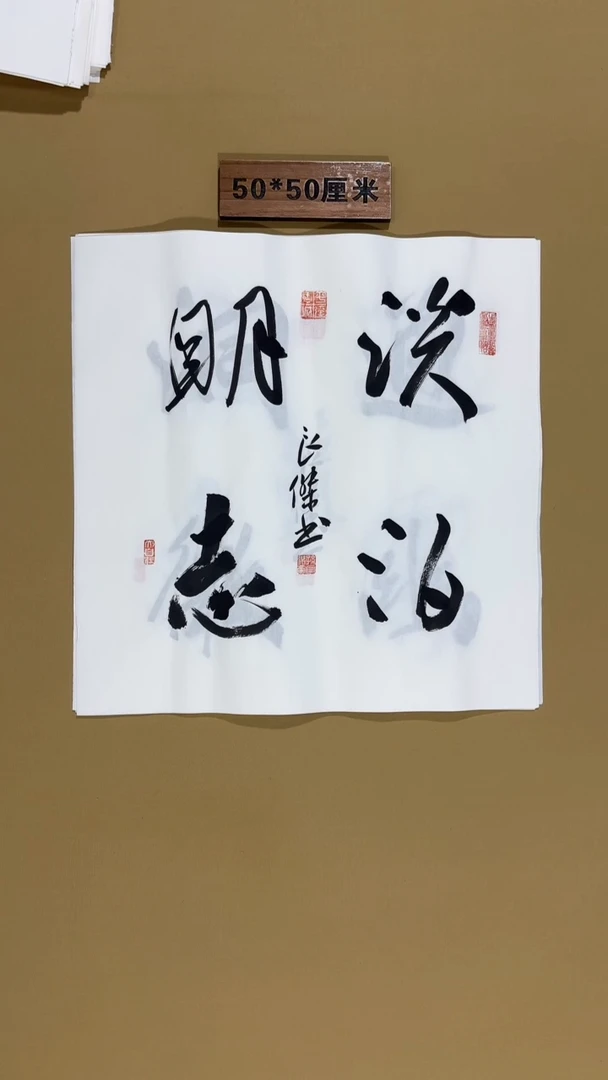 50*50厘米
淡泊
明志
傑书